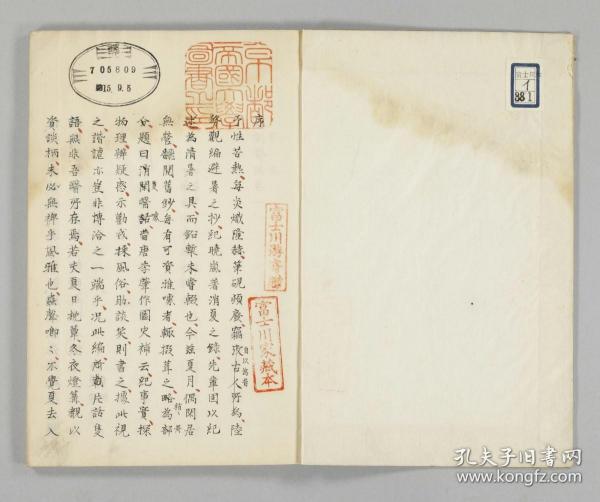 序
予性苦熱、每炎熾隆赫、筆硯頻廢、竊效古人所為、陸
自以為昔
務觀編避暑之抄、紀曉嵐著消夏之錄、先輩固以紀
述為消暑之具、而鉛槧未嘗輟也、今茲夏月、偶閑居
無營、翻閱舊鈔、每有可資雅嚎者、輒掇葺之略為部
類題曰消閑醫話、昔唐李肇作國史補云、紀事實、探
物理、辨疑惑、示勸戒、採風俗、助談笑、則書之、據此視
之、諧謔亦豈非博洽之一端乎、況此編所載、片話隻
語、無非吾醫所存焉、若夫夏日枕簟、冬夜燈篝、観以
資談柄、未必無裨乎風雅也、蟲聲喞々、不覺夏去入
京都
帝國大學
圖書之印
富士川游寄贈
富士川家藏本
705609
昭15.9.5
富士川本
イ
381
孔夫子旧书网
www.kongfz.com